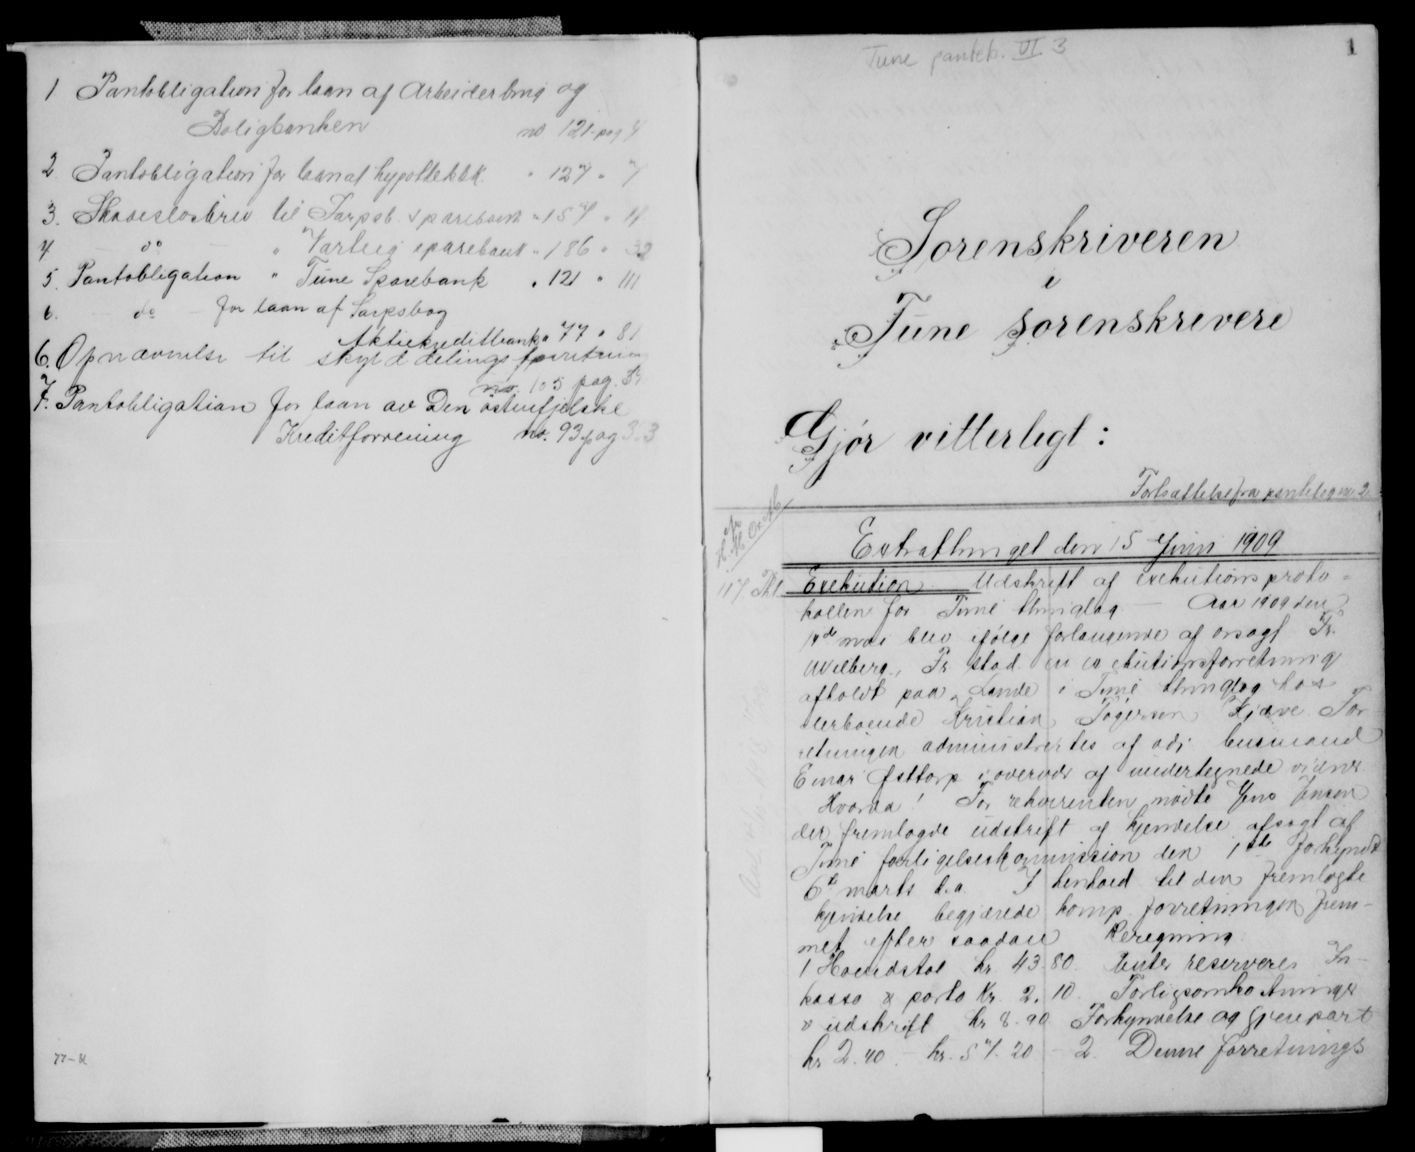 1 Pantobligation for laan af Arbeiderbrug og
Boligbanken no 121 pag 4
2 Pantobligation for laan af hypothekbk. " 127 " 7
3. Skadesløsbrev til Sarpsb. sparebank " 157 "
4 - do - " Varteig sparebank " 186 " 32
5. Pantobligation " Tune Sparebank " 121 " 111
6. - do - for laan af Sarpsbog
Aktiekreditbank " 77 " 81
6. Opnævnelse til skylddelingsforretning
no. 105 pag.
7. Pantobligation for laan av Den østenfjelske
Kreditforrening no. 93 pag 3
77-
Tune panteb. VI 3
1
Sorenskriveren
i
Tune sorenskriveri
Gjør vitterligt:
Fortsættelse fra pantebog no 2
Extrathinget den 15 Juni 1909
117.
Exekution Udskrift af exekutionsproto-
kollen for Tune thinglag - Aar 1909 den
mai blev ifølge forlangende af orsagf Fr.
Fr. stad en exekutionsforretning
afholdt paa Lande i Tune thinglag hos
derboende Kristian For-
retningen administrertes af adj. lensmand
Einar Østtorp i overvær af undertegnede vidner
Hvorda! For rekvirenten mødte Jens Jensen
der fremlagde udskrift af kjendelse afsagt af
Tune forligelseskommission den 1ste forkyndt
6te marts d.a. I henhold til den fremlagte
kjendelse begjærede komp. forretningen frem-
met efter saadan Beregning
1 Hovedstol kr. 43.80. Renter reserveres In-
kasso & porto kr. 2.10. Forligsomkostninger
& udskrift kr 8.90 Forkyndelse og gjenpart
kr 2.40 - kr. 57.20 - 2. Denne forretnings